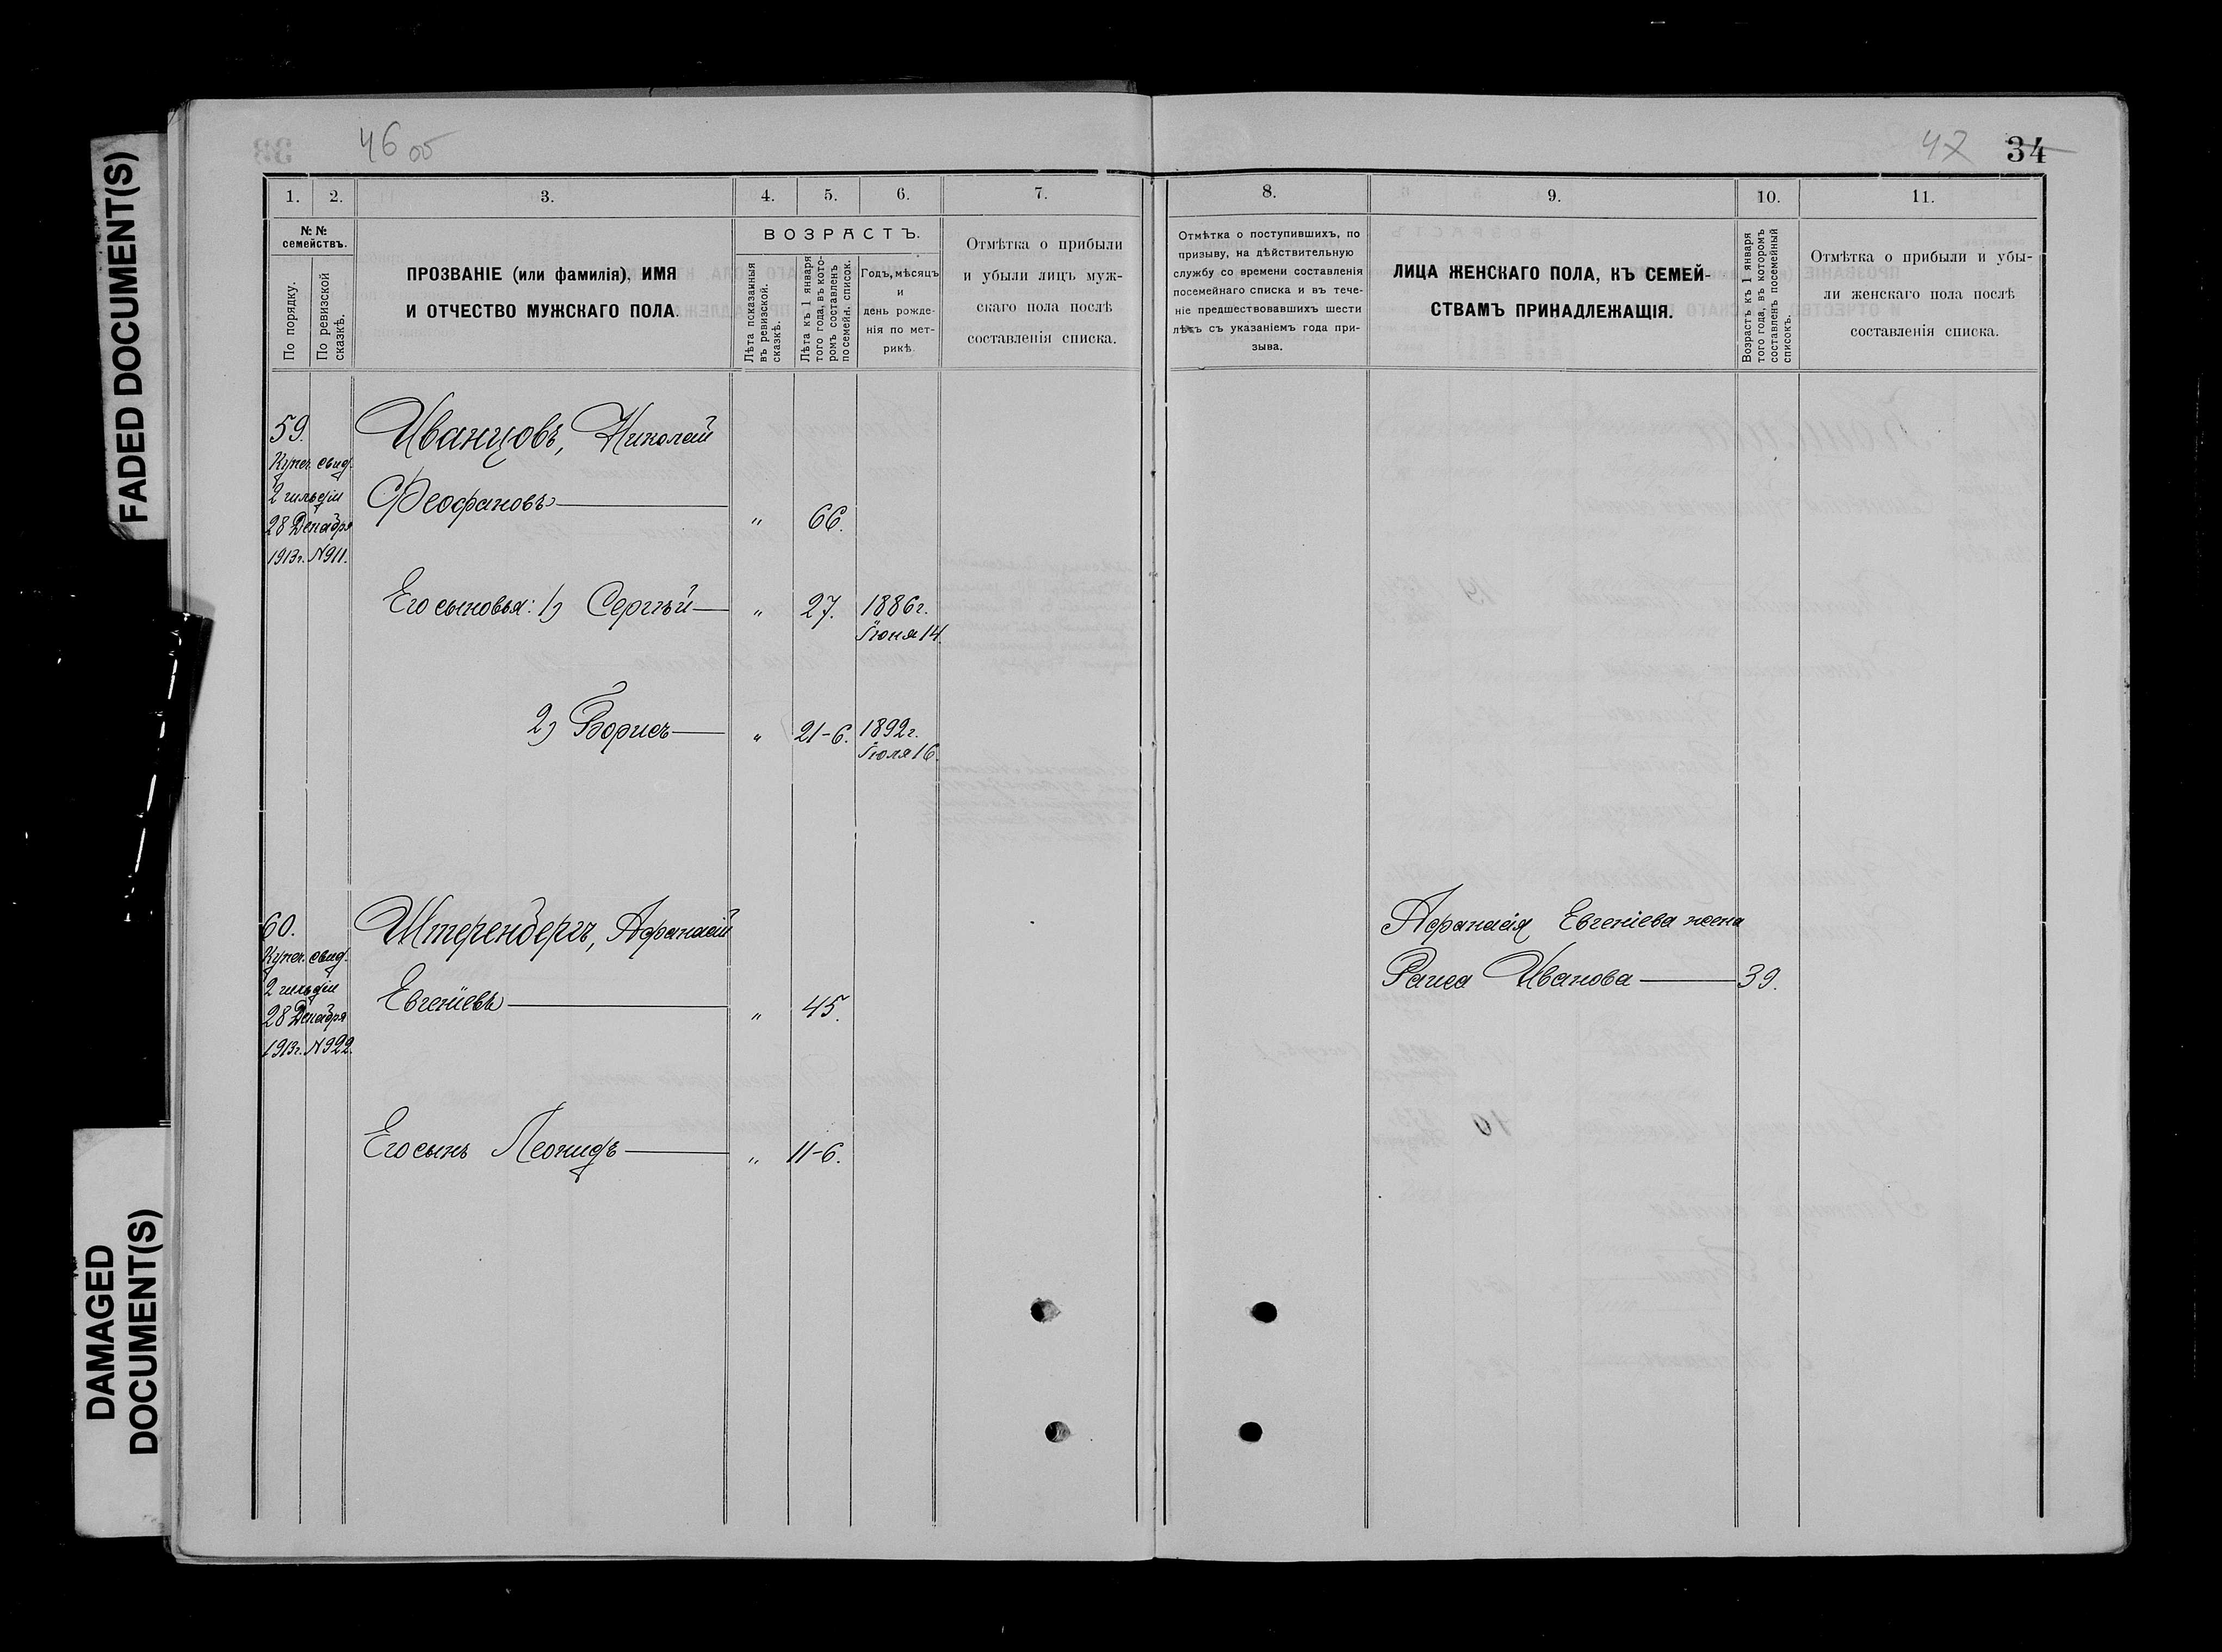 FADED DOCUMENT(S)
DAMAGED
DOCUMENT(S)
46 об
1. 2. 3. 4. 5. 6. 7.
№ №
семействъ.
По порядку.
По ревизской
сказкѣ.
ПРОЗВАНІЕ (или фамилія), ИМЯ
И ОТЧЕСТВО МУЖСКАГО ПОЛА.
ВОЗРАСТЪ.
Лѣта показанныя
въ ревизской.
сказкѣ.
Лѣта къ 1 января
того года, въ кото-
ромъ составленъ
посемейн. список.
Годъ, мѣсяцъ
и
день рожде-
нія по мет-
рикѣ
Отмѣтка о прибыли
и убыли лицъ муж-
скаго пола послѣ
составленія списка.
59.
Купеч. свид.
2 гильдіи
28 Декабря
1913г. №911.
Иванцовъ, Николай
Феофановъ
„ 66.
Его сыновья: 1) Сергѣй „ 27. 1886г.
Іюня 14.
2) Борисъ „ 21-6. 1892г.
Іюля 16.
60.
Купеч. свид.
2 гильдіи
28 Декабря
1913г. №922.
Штеренбергъ, Афанасій
Евгеніевъ
„ 45.
Его сынъ Леонидъ „ 11-6.
47 34
8. 9. 10. 11.
Отмѣтка о поступившихъ, по
призыву, на дѣйствительную
службу со времени составленія
посемейнаго списка и въ тече-
ніе предшествовавшихъ шести
лѣтъ съ указаніемъ года при-
зыва.
ЛИЦА ЖЕНСКАГО ПОЛА, КЪ СЕМЕЙ-
СТВАМЪ ПРИНАДЛЕЖАЩІЯ.
Возрастъ къ 1 января
того года, въ которомъ
составленъ посемейный
списокъ.
Отмѣтка о прибыли и убы-
ли женскаго пола послѣ
составленія списка.
Афанасія Евгеніева жена
Раиса Иванова 39.